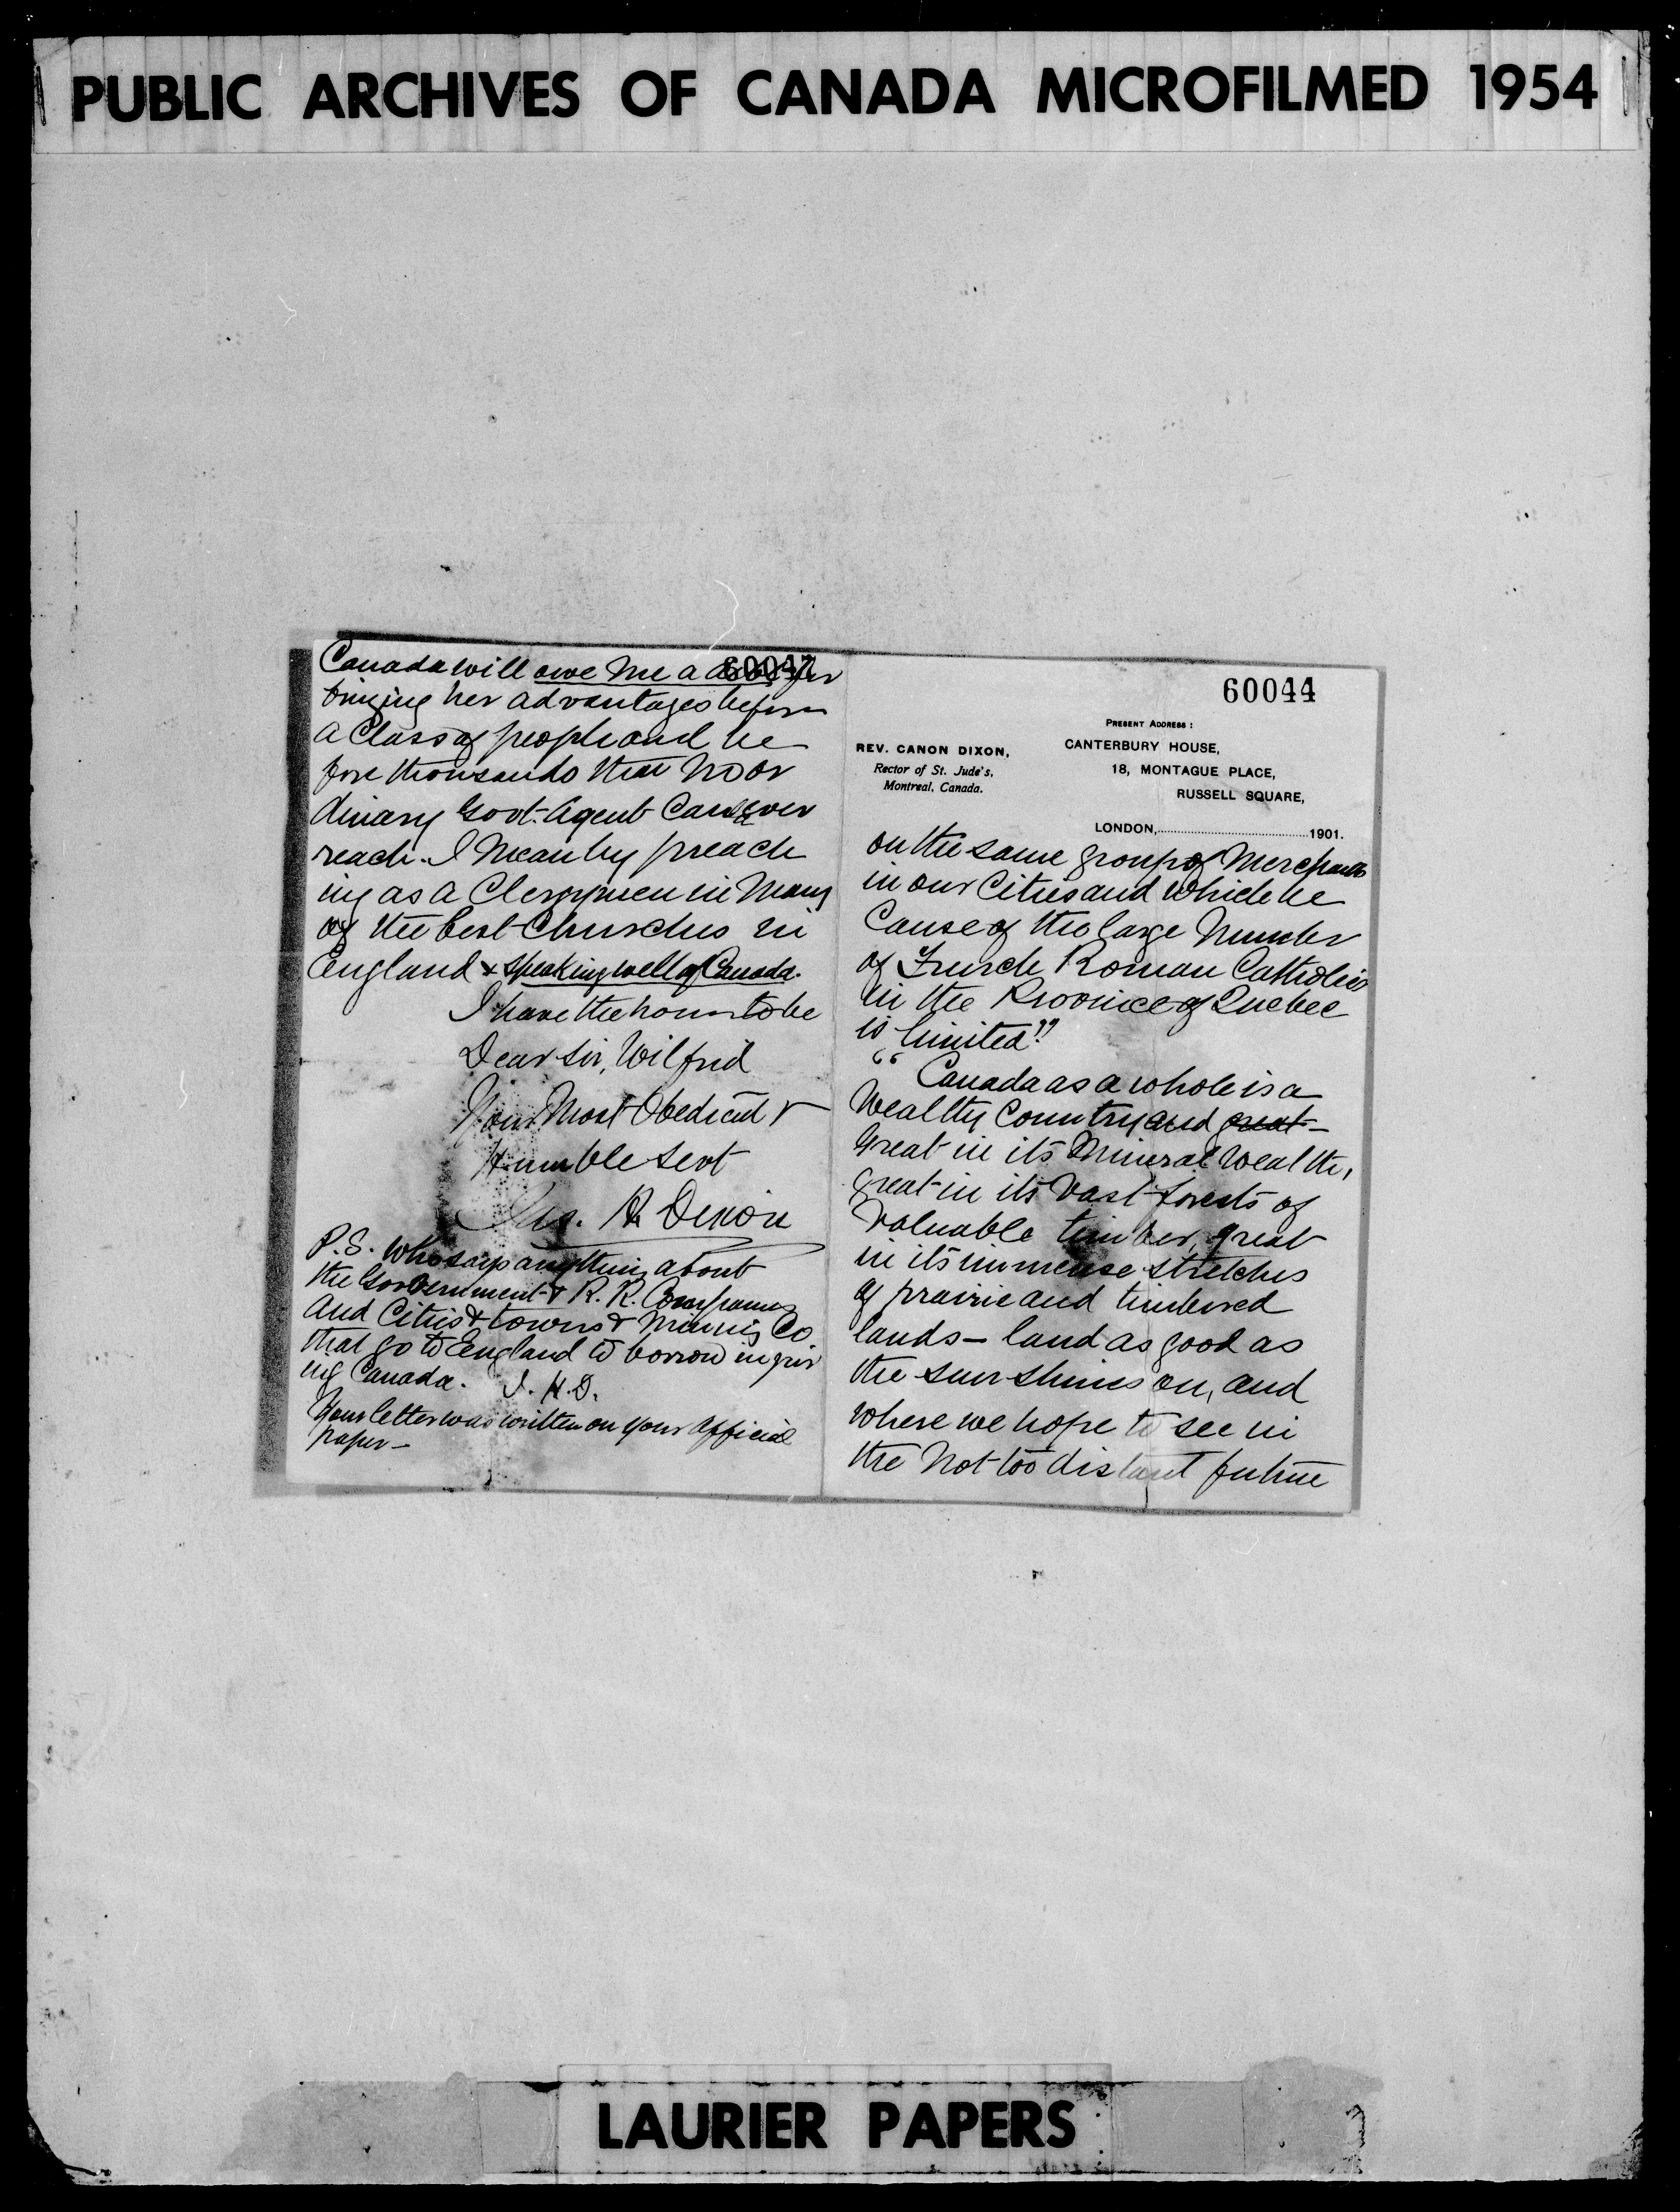 PUBLIC ARCHIVES OF CANADA MICROFILMED 1954
60047
Canada will owe me a for
bringing her advantages before
a class of people and be
fore thousands that no or
dinary Govt. Agent can ever
reach. I mean by preach
ing as a Clergymen in many
of the best Churches in
England & speaking well of Canada.
I have the honor to be
Dear Sir, Wilfrid
Your Most Obedient &
Humble Servt
Jas. H. Dixon
P.S. Who says anything about
the Government & R. R. Companies
and Cities & towns & Mining Co
that go to England to borrow
ing Canada. J. H. D.
Your letter was written on your official
paper —
60044
PRESENT ADDRESS:
REV. CANON DIXON,
Rector of St. Jude's,
Montreal, Canada.
CANTERBURY HOUSE,
18, MONTAGUE PLACE,
RUSSELL SQUARE,
LONDON,..............................1901.
on the same group of Merchants
in our Cities and which be
cause of the large number
of French Roman Catholics
in the Province of Quebec
is limited."
"Canada as a whole is a
wealthy Country and great —
great in its Mineral Wealth,
great in its vast forests of
valuable timber, great
in its immense stretches
of prairie and timbered
lands — land as good as
the sun shines on, and
where we hope to see in
the not too distant future
LAURIER PAPERS